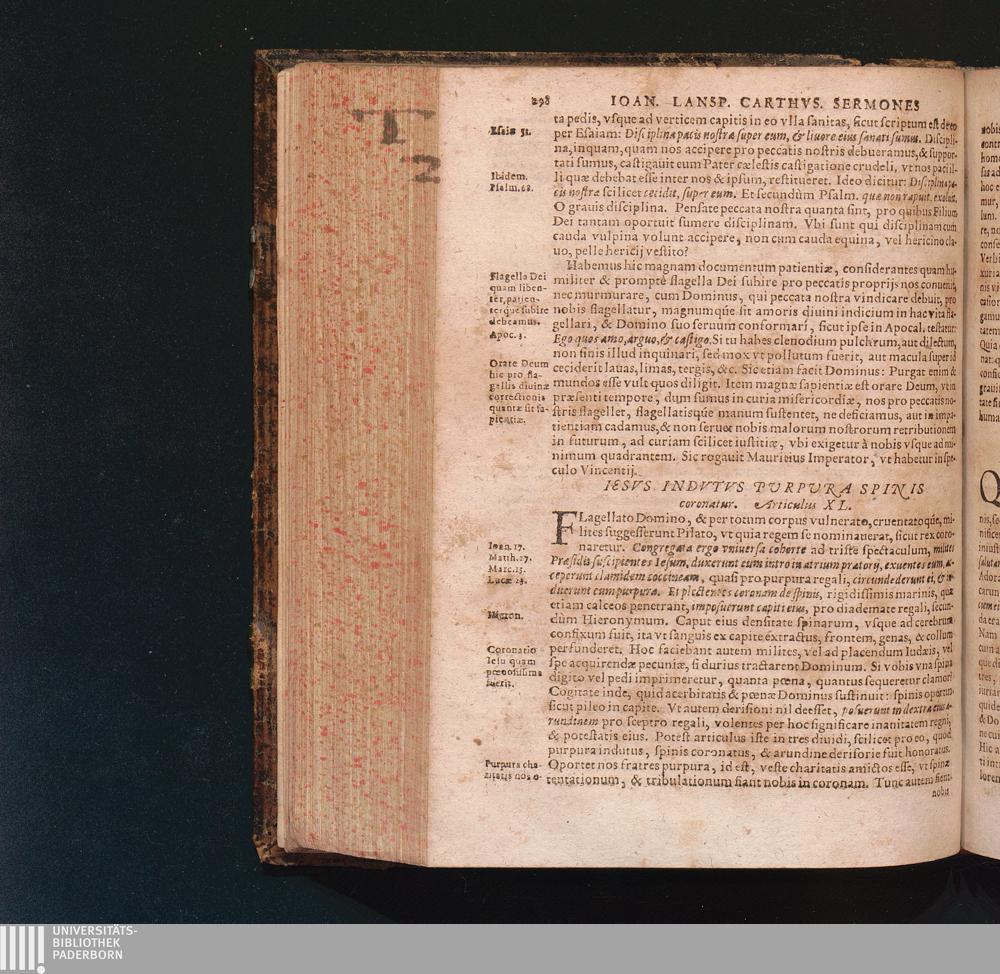 T
2
298 IOAN. LANSP. CARTHVS. SERMONES
ta pedis, vsque ad verticem capitis in eo vlla sanitas, sicut scriptum est de eo
per Esaiam: Disciplina pacis nostræ super eum, & liuore eius sanati sumus. Discipli-
na, inquam, quam nos accipere pro peccatis nostris debueramus, & suppor-
tati sumus, castigauit eum Pater cælestis castigatione crudeli, vt nos pacil-
li quæ debebat esse inter nos & ipsum, restitueret. Ideo dicitur: Disciplina pa-
cis nostræ scilicet cecidit, super eum. Et secundùm Psalm. quæ non rapuit, exoluit.
O grauis disciplina. Pensate peccata nostra quanta sint, pro quibus Filium
Dei tantam oportuit sumere disciplinam. Vbi sunt qui disciplinam cum
cauda vulpina volunt accipere, non cum cauda equina, vel hericino cla-
uo, pelle hericij vestito?
Habemus hic magnam documentum patientiæ, considerantes quam hu-
militer & promptè flagella Dei subire pro peccatis proprijs nos conuenit,
nec murmurare, cum Dominus, qui peccata nostra vindicare debuit, pro
nobis flagellatur, magnumque sit amoris diuini indicium in hac vita fla-
gellari, & Domino suo seruum conformari, sicut ipse in Apocal. testatur:
Ego quos amo, arguo, & castigo. Si tu habes clenodium pulchrum, aut dilectum,
non sinis illud inquinari, sed mox vt pollutum fuerit, aut macula super id
ceciderit lauas, limas, tergis, &c. Sic etiam facit Dominus: Purgat enim &
mundos esse vult quos diligit. Item magnæ sapientiæ est orare Deum, vt in
præsenti tempore, dum sumus in curia misericordiæ, nos pro peccatis no-
stris flagellet, flagellatisque manum sustentet, ne deficiamus, aut in impa-
tientiam cadamus, & non seruet nobis malorum nostrorum retributionem
in futurum, ad curiam scilicet iustitiæ, vbi exigetur à nobis vsque ad mi-
nimum quadrantem. Sic rogauit Mauritius Imperator, vt habetur in spe-
culo Vincentij.
IESVS INDVTVS PVRPVRA SPINIS
coronatur. Articulus XL.
FLagellato Domino, & per totum corpus vulnerato, cruentatoque, mi-
lites suggesserunt Pilato, vt quia regem se nominauerat, sicut rex coro-
naretur. Congregata ergo vniuersa cohorte ad triste spectaculum, milites
Præsidis suscipientes Iesum, duxerunt eum intro in atrium prætorij, exuentes eum, ac-
ceperunt clamidem coccineam, quasi pro purpura regali, circundederunt ei, & in-
duerunt eum purpura. Et plectentes coronam de spinis, rigidissimis marinis, quæ
etiam calceos penetrant, imposuerunt capiti eius, pro diademate regali, secun-
dùm Hieronymum. Caput eius densitate spinarum, vsque ad cerebrum
confixum fuit, ita vt sanguis ex capite extractus, frontem, genas, & collum
perfunderet. Hoc faciebant autem milites, vel ad placendum Iudæis, vel
spe acquirendæ pecuniæ, si durius tractarent Dominum. Si vobis vna spina
digito vel pedi imprimeretur, quanta pœna, quantus sequeretur clamor?
Cogitate inde, quid acerbitatis & pœnæ Dominus sustinuit: spinis oportun-
sicut pileo in capite. Vt autem derisioni nil deesset, posuerunt in dextra eius a-
rundinem pro sceptro regali, volentes per hoc significare inanitatem regni,
& potestatis eius. Potest articulus iste in tres diuidi, scilicet pro eo, quod
purpura indutus, spinis coronatus, & arundine derisorie fuit honoratus.
Oportet nos fratres purpura, id est, veste charitatis amictos esse, vt spinæ
tentationum, & tribulationum fiant nobis in coronam. Tunc autem fient
nobis
Esaiæ 53.
Ibidem.
Psalm. 68.
Flagella Dei
quam liben-
ter, patien-
terque subire
debeamus.
Apoc. 3.
Orare Deum
hic pro fla-
gellis diuinæ
correctionis
quantæ sit sa-
pientiæ.
Ioan. 17.
Matth. 27.
Marc. 15.
Lucæ 23.
Hieron.
Coronatio
Iesu quam
pœnosissima
fuerit.
Purpura cha-
ritatis nos o-
UNIVERSITÄTS-
BIBLIOTHEK
PADERBORN